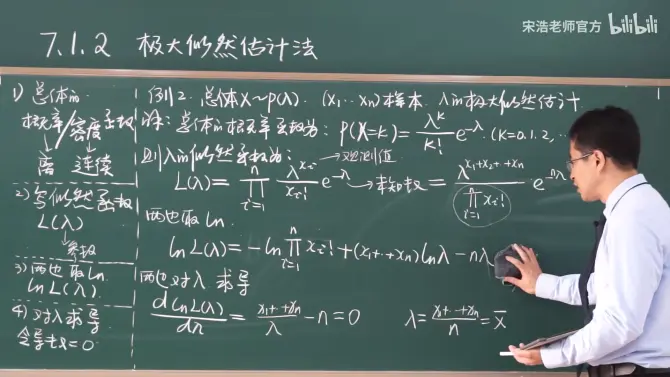 宋浩老师官方 bilibili
7.1.2 极大似然估计法
1) 总体的
概率/密度函数
↓ ↓
离 连续
2) 写似然函数
L(λ)
↘参数
3) 两边取ln
ln L(λ)
4) 对λ求导
令导数=0
例2. 总体X~P(λ). (X₁…Xn)样本. λ的极大似然估计
解: 总体的概率函数为: P(X=K)=λ^K/K! e^-λ. (K=0.1.2,…
则λ的似然函数为: →观测值
L(λ)=∏_{i=1}^{n} λ^{xi}/xi! e^-λ→未知数=λ^{x1+x2+…+xn}/∏_{i=1}^{n} xi! e^-nλ
两边取ln
ln L(λ)=-ln∏_{i=1}^{n} xi!+(x₁+…+xn)lnλ-nλ
两边对λ求导
d ln L(λ)/dλ=x₁+…+xn/λ-n=0 λ=x₁+…+xn/n=x̄